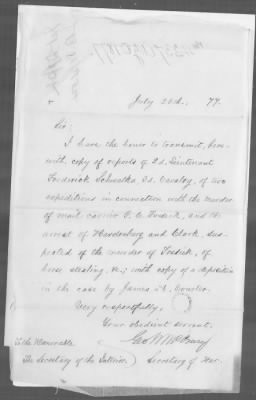 July 26th, 77.
Sir:
I have the honor to transmit, here-
with copy of reports of 2d. Lieutenant
Frederick Schwatka, 3d. Cavalry, of two
expeditions in connection with the murder
of mail carrier C. C. and the
arrest of Hardenburg and Clark, sus-
pected of the murder of of
horse stealing, &c; with copy of a deposition
in the case by James H.
Very respectfully,
Your obedient servant,
Geo W McCrary
To the Honorable
The Secretary of the Interior) Secretary of War.